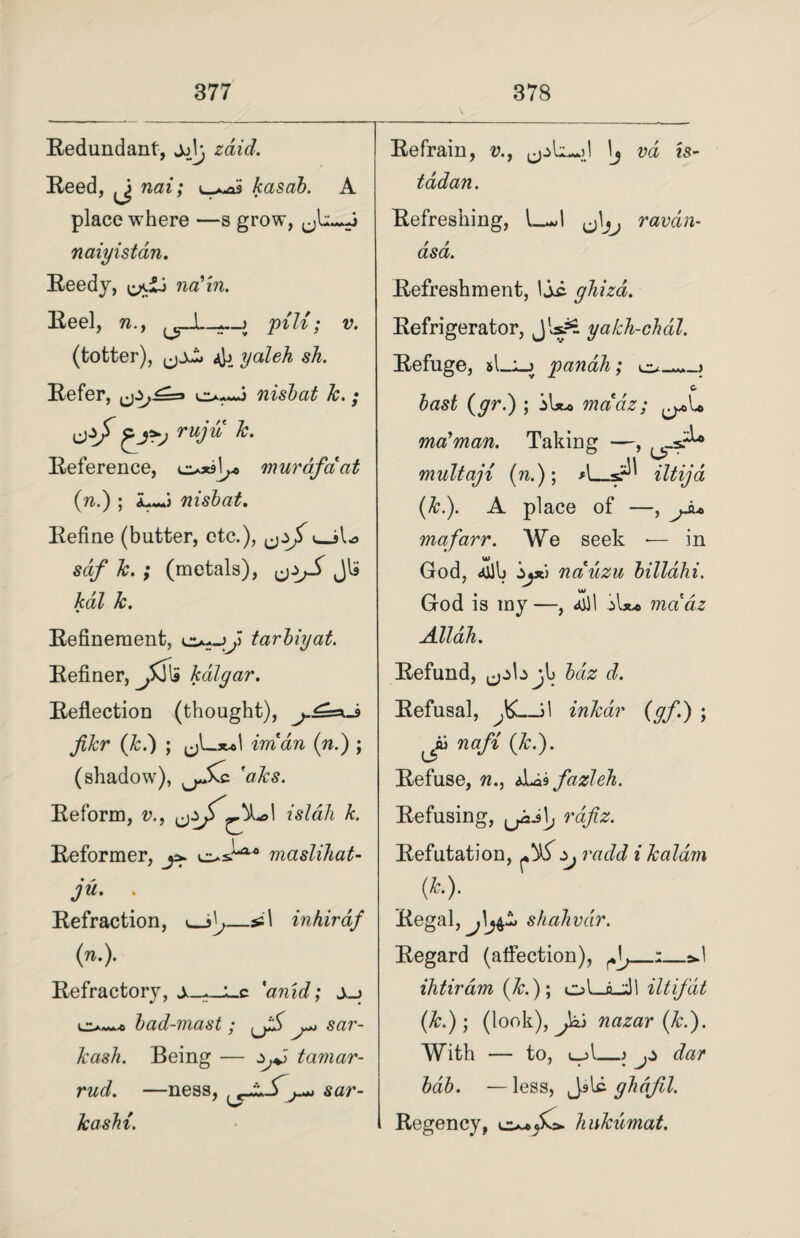 377
Redundant, زاید záid.
Reed, نی nai; قصب kasab. A
place where —s grow, نیستان
naiyistán.
Reedy, نئین na'in.
Reel, n., پیلی pílí; v.
(totter), یله شدن yaleh sh.
Refer, نسبت کردن nisbat k.;
رجوع کردن rujú‘ k.
Reference, مرافعت muráfa‘at
(n.); نسبة nisbat.
Refine (butter, etc.), صاف کردن
sáf k.; (metals), قال کردن
kál k.
Refinement, تربیت tarbiyat.
Refiner, قالگر kálgar.
Reflection (thought), فکر
fikr (k.); امعان im‘án (n.);
(shadow), عکس ‘aks.
Reform, v., اصلاح کردن isláh k.
Reformer, مصلحت جو maslihat-
jú.
Refraction, انحراف inhiráf
(n.).
Refractory, عنید ‘aníd; بد
مست bad-mast; سر کش sar-
kash. Being — تمرد tamar-
rud. —ness, سر کشی sar-
kashí.
378
Refrain, v., وا استادن vá is-
tádan.
Refreshing, روان اسا raván-
ásá.
Refreshment, غذا ghizá.
Refrigerator, یخچال yakh-chál.
Refuge, پناه panáh; بست
bast (gr.); معاذ ma‘áz; مأمن
ma'man. Taking —, ملتجی
multají (n.); التجاء iltijá
(k.). A place of —, مفر
mafarr. We seek — in
God, نعوذ بالله na‘úzu billáhi.
God is my —, معاذ الله ma‘áz
Alláh.
Refund, باز دادن báz d.
Refusal, انکار inkár (gf.);
نفی nafí (k.).
Refuse, n., فضله fazleh.
Refusing, رافض ráfiz.
Refutation, رد کلام radd i kalám
(k.).
Regal, شهوار shahvár.
Regard (affection), احترام
ihtirám (k.); التفات iltifát
(k.); (look), نظر nazar (k.).
With — to, در باب dar
báb. —less, غافل gháfil.
Regency, حکومت hukúmat.